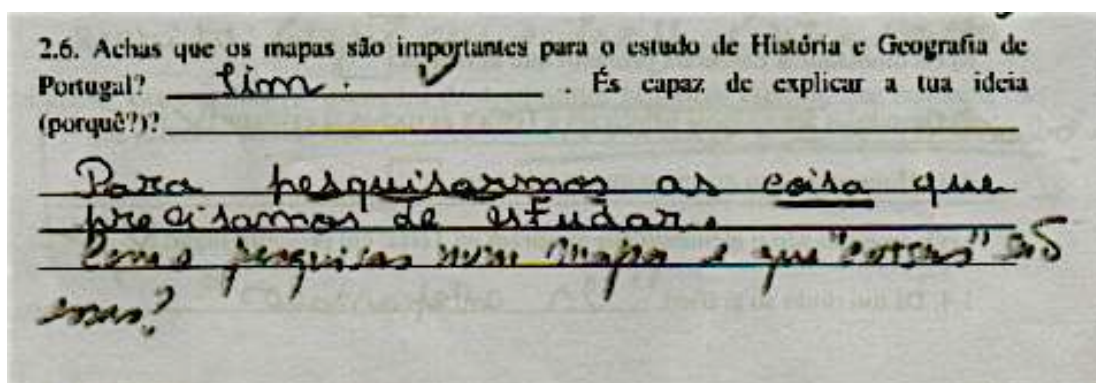 2.6. Achas que os mapas são importantes para o estudo de História e Geografia de
Portugal? Sim. . És capaz de explicar a tua ideia
(porquê?)?
Para pesquisarmos as coisa que
precisamos de estudar.
Como pesquisas num mapa e que "coisas" são
essas?